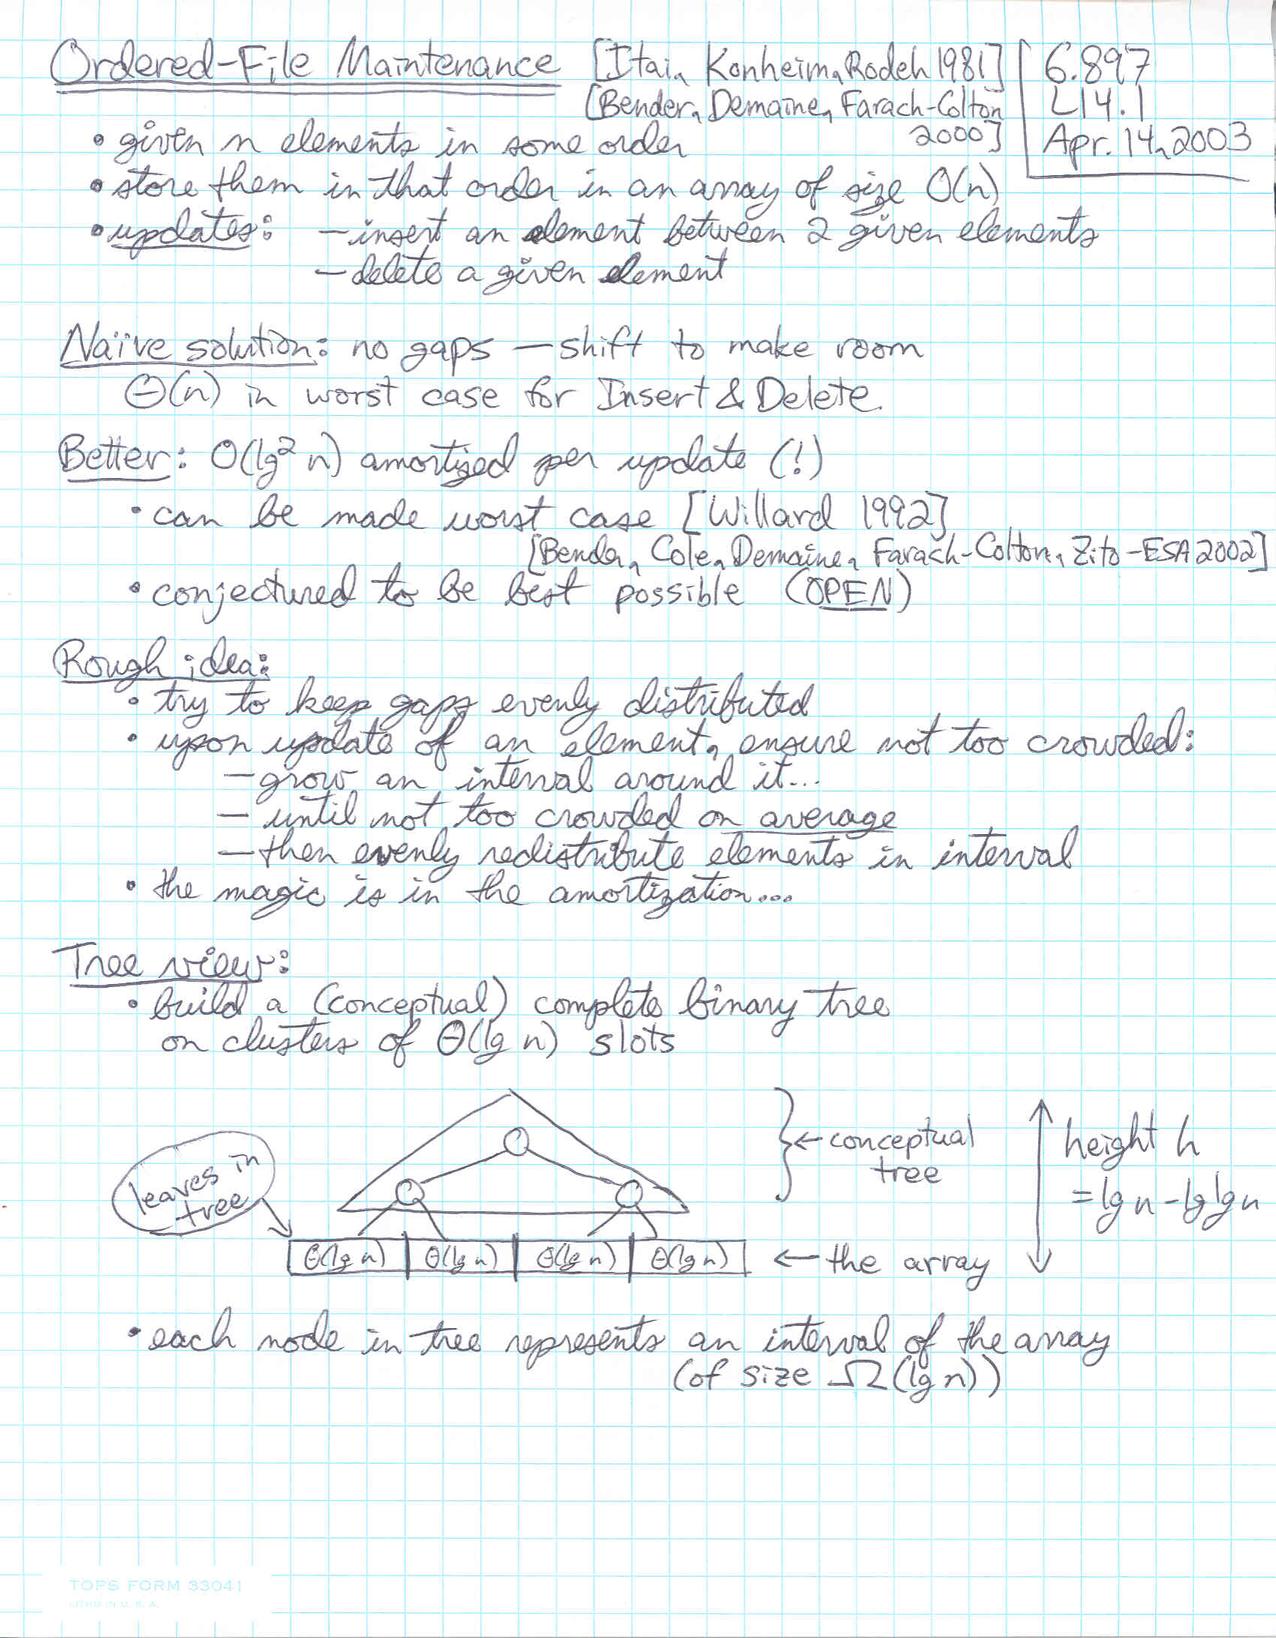 Ordered-File Maintenance [Itai, Konheim, Rodeh 1981]
[Bender, Demaine, Farach-Colton
2000]
6.897
L14.1
Apr. 14, 2003
• given n elements in some order
• store them in that order in an array of size O(n)
• updates: – insert an element between 2 given elements
– delete a given element
Naïve solution: no gaps – shift to make room
Θ(n) in worst case for Insert & Delete.
Better: O(lg² n) amortized per update (!)
• can be made worst case [Willard 1992]
[Bender, Cole, Demaine, Farach-Colton, Zito - ESA 2002]
• conjectured to be best possible (OPEN)
Rough idea:
• try to keep gaps evenly distributed
• upon update of an element, ensure not too crowded:
– grow an interval around it...
– until not too crowded on average
– then evenly redistribute elements in interval
• the magic is in the amortization...
Tree view:
• build a (conceptual) complete binary tree
on clusters of Θ(lg n) slots
← conceptual
tree
height h
= lg n - lg lg n
leaves in
tree
Θ(lg n) Θ(lg n) Θ(lg n) Θ(lg n) ← the array
• each node in tree represents an interval of the array
(of size Ω(lg n))
TOPS FORM 33041
LITHO IN U. S. A.